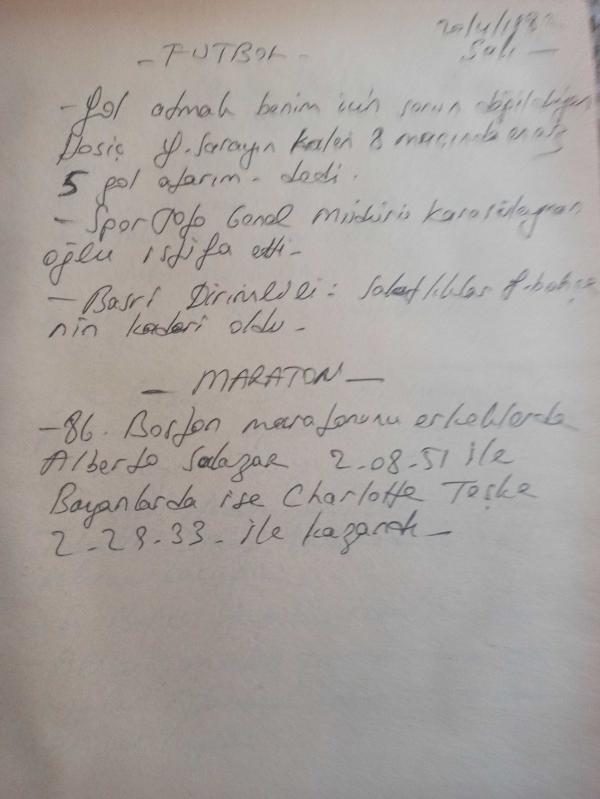 20/4/1982
Salı —
- FUTBOL -
- Gol atmak benim için sorun değil diyen
Dosiç G. Sarayın kalan 8 maçında en az
5 gol atarım - dedi.
- Spor Toto Genel Müdürü
oğlu istifa etti -
- Basri Dirimlili: Sakatlıklar F. bahçe
nin kaderi oldu -
— MARATON —
- 86. Boston maratonunu erkeklerde
Alberto Salazar 2.08.51 ile
Bayanlarda ise Charlotte Teske
2-29-33- ile kazandı —